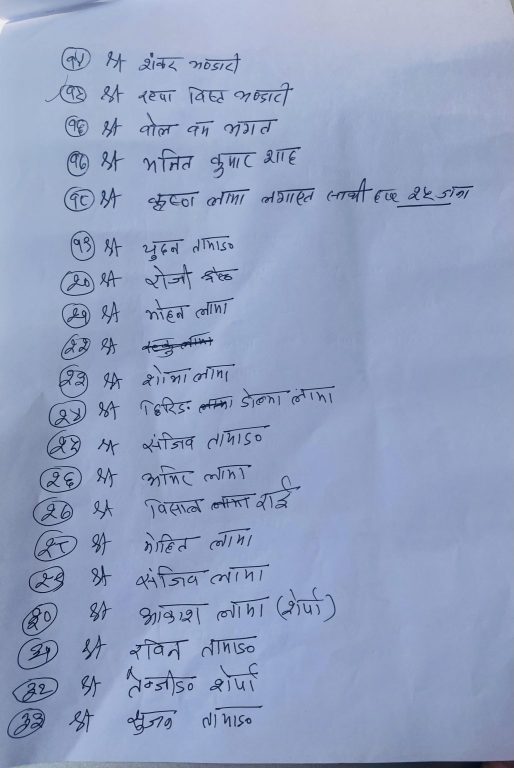 (१४) श्री शंकर भण्डारी
(१५) श्री विस्ट भण्डारी
(१६) श्री वोल वम भगत
(१७) श्री अजित कुमार शाह
(१८) श्री कृष्ण लामा लगाएत साथी हरु २५ जना
(१९) श्री युदन तामाङ
(२०) श्री रोजी श्रेष्ठ
(२१) श्री मोहन लामा
(२२) श्री
(२३) श्री शोभा लामा
(२४) श्री छिरिङ डोल्मा लामा
(२५) श्री संजिव तामाङ
(२६) श्री अमिर लामा
(२७) श्री विसाल राई
(२८) श्री मोहित लामा
(२९) श्री संजिव लामा
(३०) श्री आकाश लामा (शेर्पा)
(३१) श्री रविन तामाङ
(३२) श्री तेन्जीङ शेर्पा
(३३) श्री सुजन तामाङ